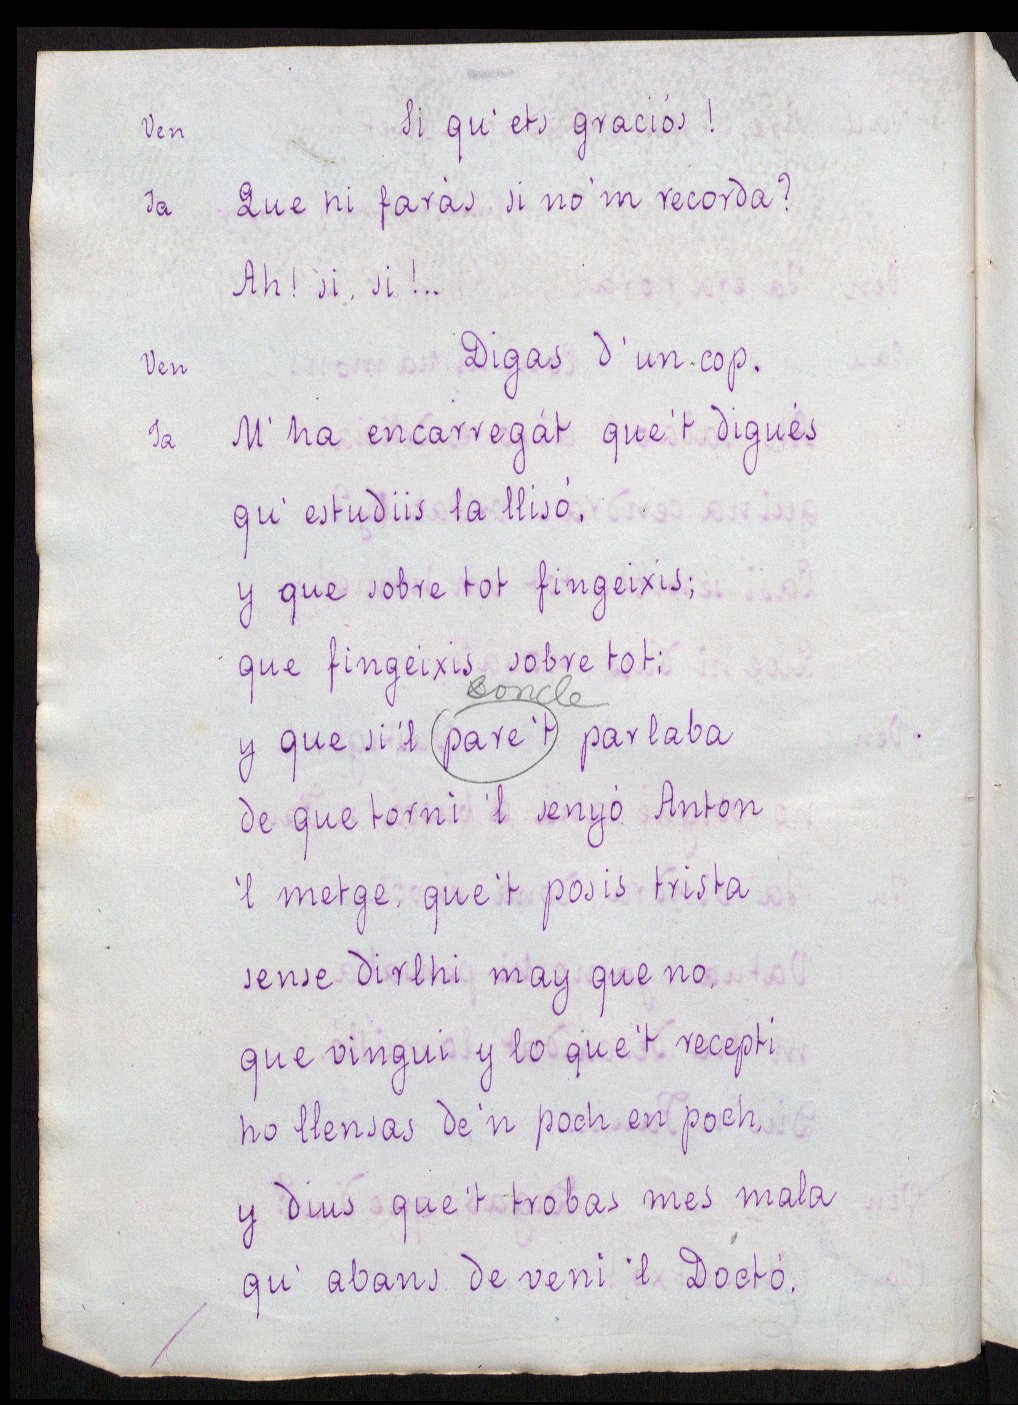 Ven Si qu' ets graciós!
Ja Que hi farás si no'm recorda?
Ah! si, si!..
Ven Digas d'un cop.
Ja M' ha encarregát que't digués
qu' estudiis la llisó,
y que sobre tot fingeixis;
que fingeixis sobre tot;
oncle
y que si'l pare't parlaba
de que torni 'l senyó Anton
'l metge, que't posis trista
sense dirlhi may que no,
que vingui y lo que't recepti
ho llensas de'n poch en poch,
y dius que't trobas mes mala
qu' abans de veni 'l Doctó.